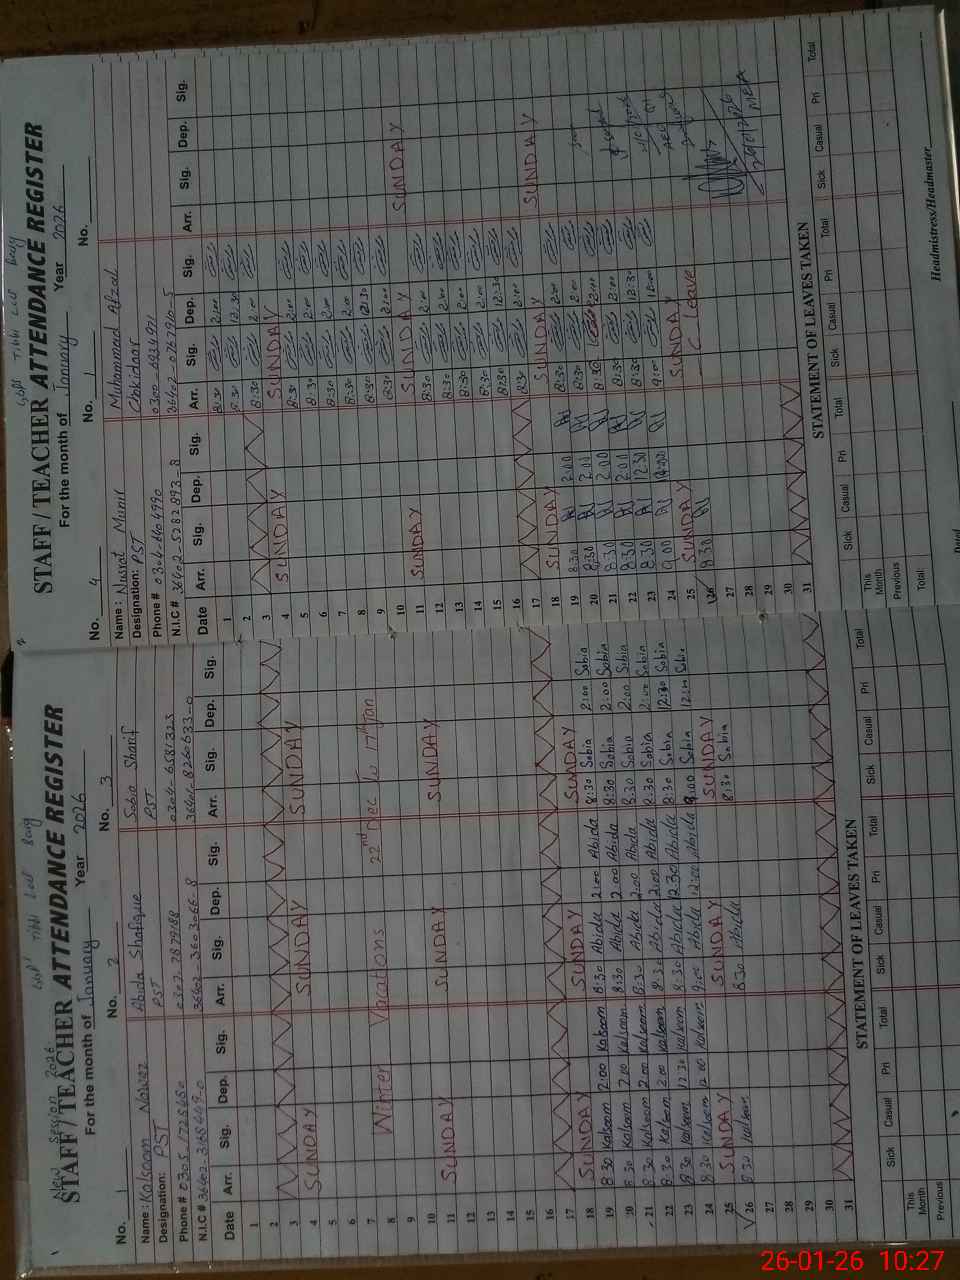 New Session 2026
STAFF/TEACHER ATTENDANCE REGISTER
For the month of January Year 2026
No. 1 No. 2 No. 3
Name: Kalsoom Nawaz Abida Shafique Sobia Sharif
Designation: PST PST PST
Phone #
N.I.C #
Date Arr. Sig. Dep. Sig. Arr. Sig. Dep. Sig. Arr. Sig. Dep. Sig.
1
2
3
4 SUNDAY SUNDAY SUNDAY
5
6
7 Winter Vacations 22nd Dec To 17th Jan
8
9
10
11 SUNDAY SUNDAY SUNDAY
12
13
14
15
16
17
18 SUNDAY SUNDAY SUNDAY
19 8:30 Kalsoom 2:00 Kalsoom 8:30 Abida 2:00 Abida 8:30 Sobia 2:00 Sobia
20 8:30 Kalsoom 2:00 Kalsoom 8:30 Abida 2:00 Abida 8:30 Sobia 2:00 Sobia
21 8:30 Kalsoom 2:00 Kalsoom 8:30 Abida 2:00 Abida 8:30 Sobia 2:00 Sobia
22 8:30 Kalsoom 2:00 Kalsoom 8:30 Abida 2:00 Abida 8:30 Sobia 2:00 Sobia
23 8:30 Kalsoom 12:30 Kalsoom 8:30 Abida 12:30 Abida 8:30 Sobia 12:30 Sobia
24 8:30 Kalsoom 12:00 Kalsoom 9:00 Abida 12:00 Abida 9:00 Sobia 12:00 Sobia
25 SUNDAY SUNDAY SUNDAY
26 8:30 Kalsoom 8:30 Abida 8:30 Sobia
27
28
29
30
31
STATEMENT OF LEAVES TAKEN
Sick Casual Pri Total Sick Casual Pri Total Sick Casual Pri Total
This Month
Previous
STAFF/TEACHER ATTENDANCE REGISTER
For the month of January Year 2026
No. 4 No. 1 No.
Name: Nusrat Munir Muhammad Afzal
Designation: PST Chkidaar
Phone # 0306-6404990
N.I.C # 36402-5282893-8 36402-0767910-5
Date Arr. Sig. Dep. Sig. Arr. Sig. Dep. Sig. Arr. Sig. Dep. Sig.
1 8:30 2:00
2 8:30 12:30
3 8:30 2:00
4 SUNDAY SUNDAY
5 8:30 2:00
6 8:30 2:00
7 8:30 2:00
8 8:30 2:00
9 8:30 12:30
10 8:30 2:00 SUNDAY
11 SUNDAY SUNDAY
12 8:30 2:00
13 8:30 2:00
14 8:30 2:00
15 8:30 2:00
16 8:30 12:30
17 8:30 2:00 SUNDAY
18 SUNDAY SUNDAY
19 8:30 2:00 8:30 2:00
20 8:30 2:00 8:30 2:00
21 8:30 2:00 8:30 2:00
22 8:30 2:00 8:30 2:00
23 8:30 12:30 8:30 12:30
24 9:00 12:00 9:00 12:00
25 SUNDAY SUNDAY
26 8:30 C. Leave
27
28
29
30
31
STATEMENT OF LEAVES TAKEN
Sick Casual Pri Total Sick Casual Pri Total Sick Casual Pri Total
This Month
Previous
Total:
Headmistress/Headmaster
26-01-26 10:27